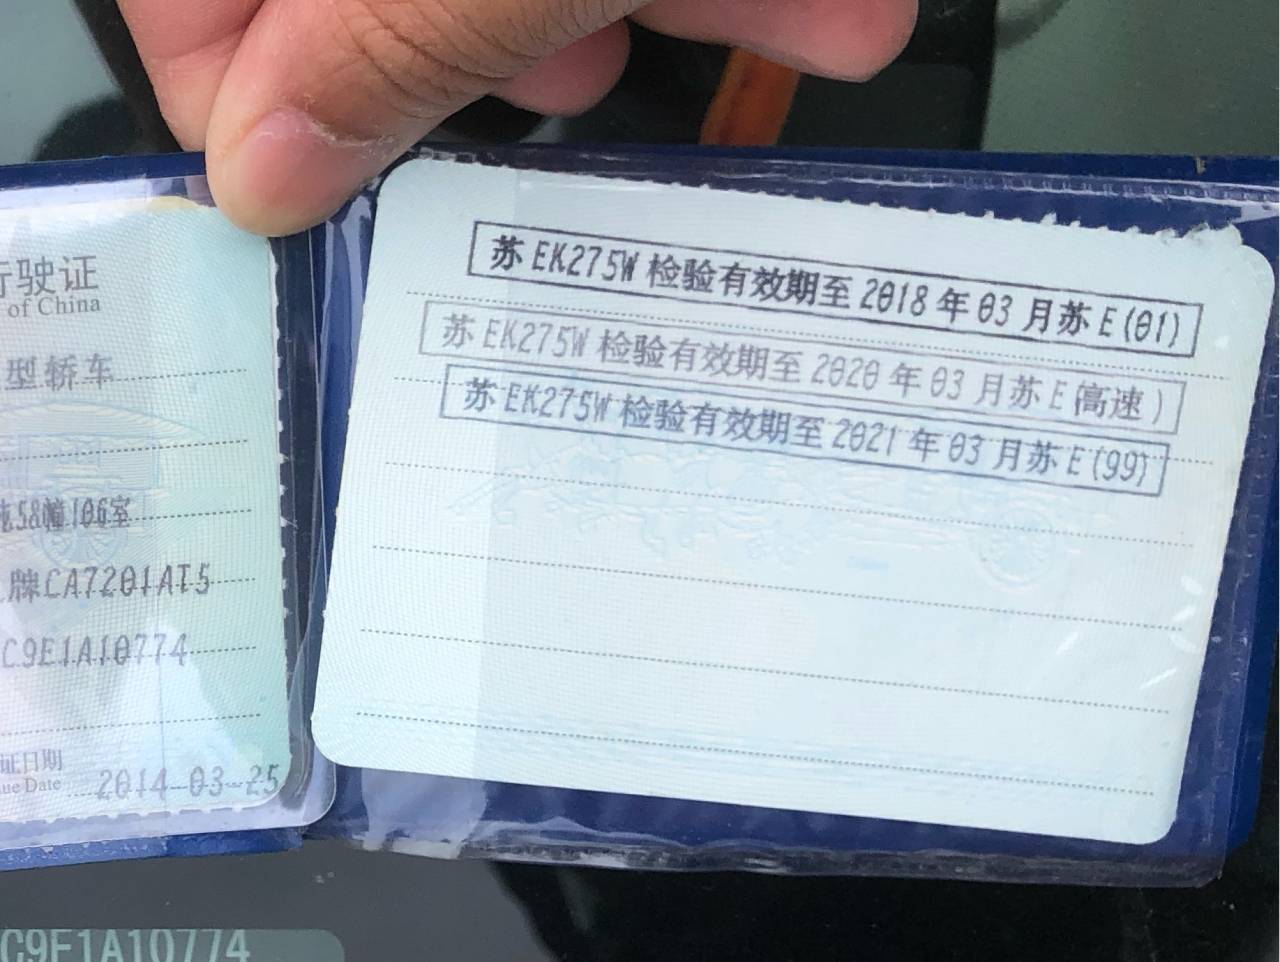 行驶证
of China
型轿车
58幢106室
牌CA7201AT5
C9E1A10774
证日期
ue Date
2014-03-25
苏EK275W检验有效期至2018年03月苏E(01)
苏EK275W检验有效期至2020年03月苏E(高速)
苏EK275W检验有效期至2021年03月苏E(99)
C9E1A10774